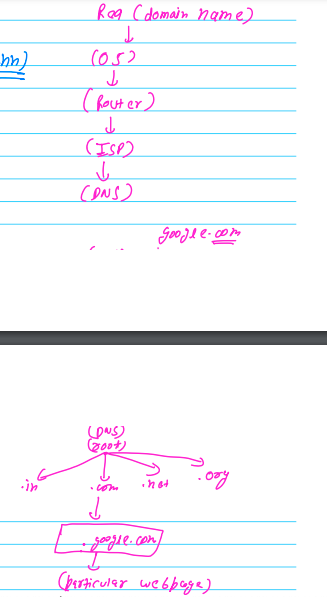 Req (domain name)
(OS)
(Router)
(ISP)
(DNS)
google.com
(DNS)
(root)
.in .com .net .org
.google.com
(particular webpage)